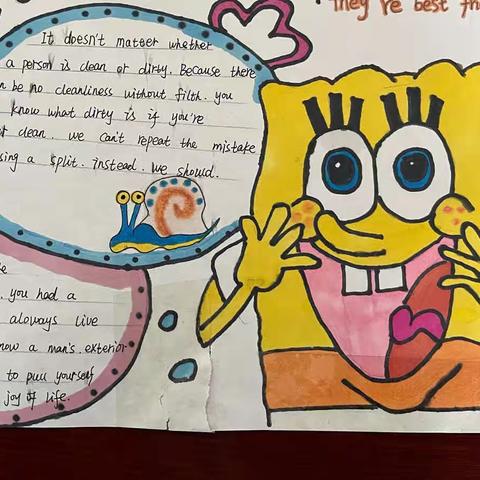 They're best th
It doesn't matter whether
a person is clean or dirty. Because there
n be no cleanliness without filth. you
know what dirty is if you're
t clean. we can't repeat the mistake
sing a split. instead. we should.
e
, you had a
alovays live
now a man's exterior
to pull yourself
joy of life.